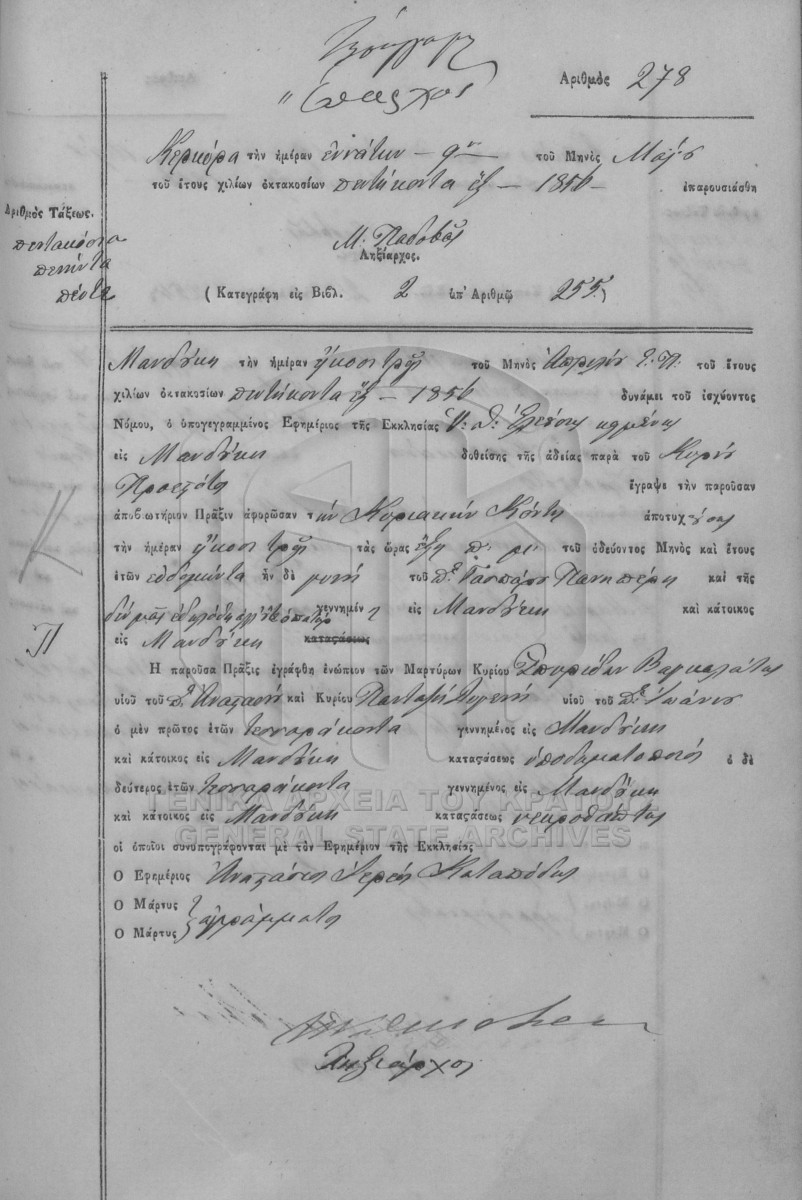 Ἔπαρχος
Ἀριθμὸς 278
Κερκύρα τὴν ἡμέραν ἐννάτην — 9ην — τοῦ Μηνὸς Μαΐου
τοῦ ἔτους χιλίων ὀκτακοσίων πεντήκοντα ἕξ — 1856 — ἐπαρουσιάσθη
Ἀριθμὸς Τάξεως.
πεντακόσια
πενήντα
πέντε
Ληξίαρχος.
( Κατεγράφη εἰς Βιβλ. 2 ὑπ' Ἀριθμῷ 255.)
Μανδύκη τὴν ἡμέραν ἤκοσι τρῆς τοῦ Μηνὸς Ἀπριλίου Ε. Π. τοῦ ἔτους
χιλίων ὀκτακοσίων πεντήκοντα ἕξ — 1856 δυνάμει τοῦ ἰσχύοντος
Νόμου, ὁ ὑπογεγραμμένος Ἐφημέριος τῆς Ἐκκλησίας Ὑ. Θ. Ἐλεούσης
εἰς Μανδύκη δοθείσης τῆς ἀδείας παρὰ τοῦ Κυρίου
Προεστῶτος ἔγραψε τὴν παροῦσαν
ἀποβωτήριον Πρᾶξιν ἀφορῶσαν τὴν Κυριακὴν Κόντη ἀποτυχούσης
τὴν ἡμέραν ἤκοσι τρῆς τὰς ὥρας ἕξη π. μ. τοῦ ὁδεύοντος Μηνὸς καὶ ἔτους
ἐτῶν εὐδομήντα ἦν δὲ τοῦ ποτὲ Γασπάρου καὶ τῆς
γεννημένη εἰς Μανδύκη καὶ κάτοικος
εἰς Μανδύκη καταςάσεως
Ἡ παροῦσα Πρᾶξις ἐγράφθη ἐνώπιον τῶν Μαρτύρων Κυρίου Σπυρίδων
υἱοῦ τοῦ ποτὲ Ἀναστάση καὶ Κυρίου Παντελῆ υἱοῦ τοῦ ποτὲ Ἰωάννου
ὁ μὲν πρῶτος ἐτῶν τεσσαράκοντα γεννημένος εἰς Μανδύκη
καὶ κάτοικος εἰς Μανδύκη καταςάσεως ὑποδηματοποιός ὁ δὲ
δεύτερος ἐτῶν τεσσαράκοντα γεννημένος εἰς Μανδύκη
καὶ κάτοικος εἰς Μανδύκη καταςάσεως νεκροθάπτης
οἱ ὁποῖοι συνυπογράφονται μὲ τὸν Ἐφημέριον τῆς Ἐκκλησίας
Ὁ Ἐφημέριος Ἀναστάσιος Ἱερεὺς Καταπόδης
Ὁ Μάρτυς
Ὁ Μάρτυς ἀγράμματοι
Ληξίαρχος
ΓΕΝΙΚΑ ΑΡΧΕΙΑ ΤΟΥ ΚΡΑΤΟΥΣ
GENERAL STATE ARCHIVES